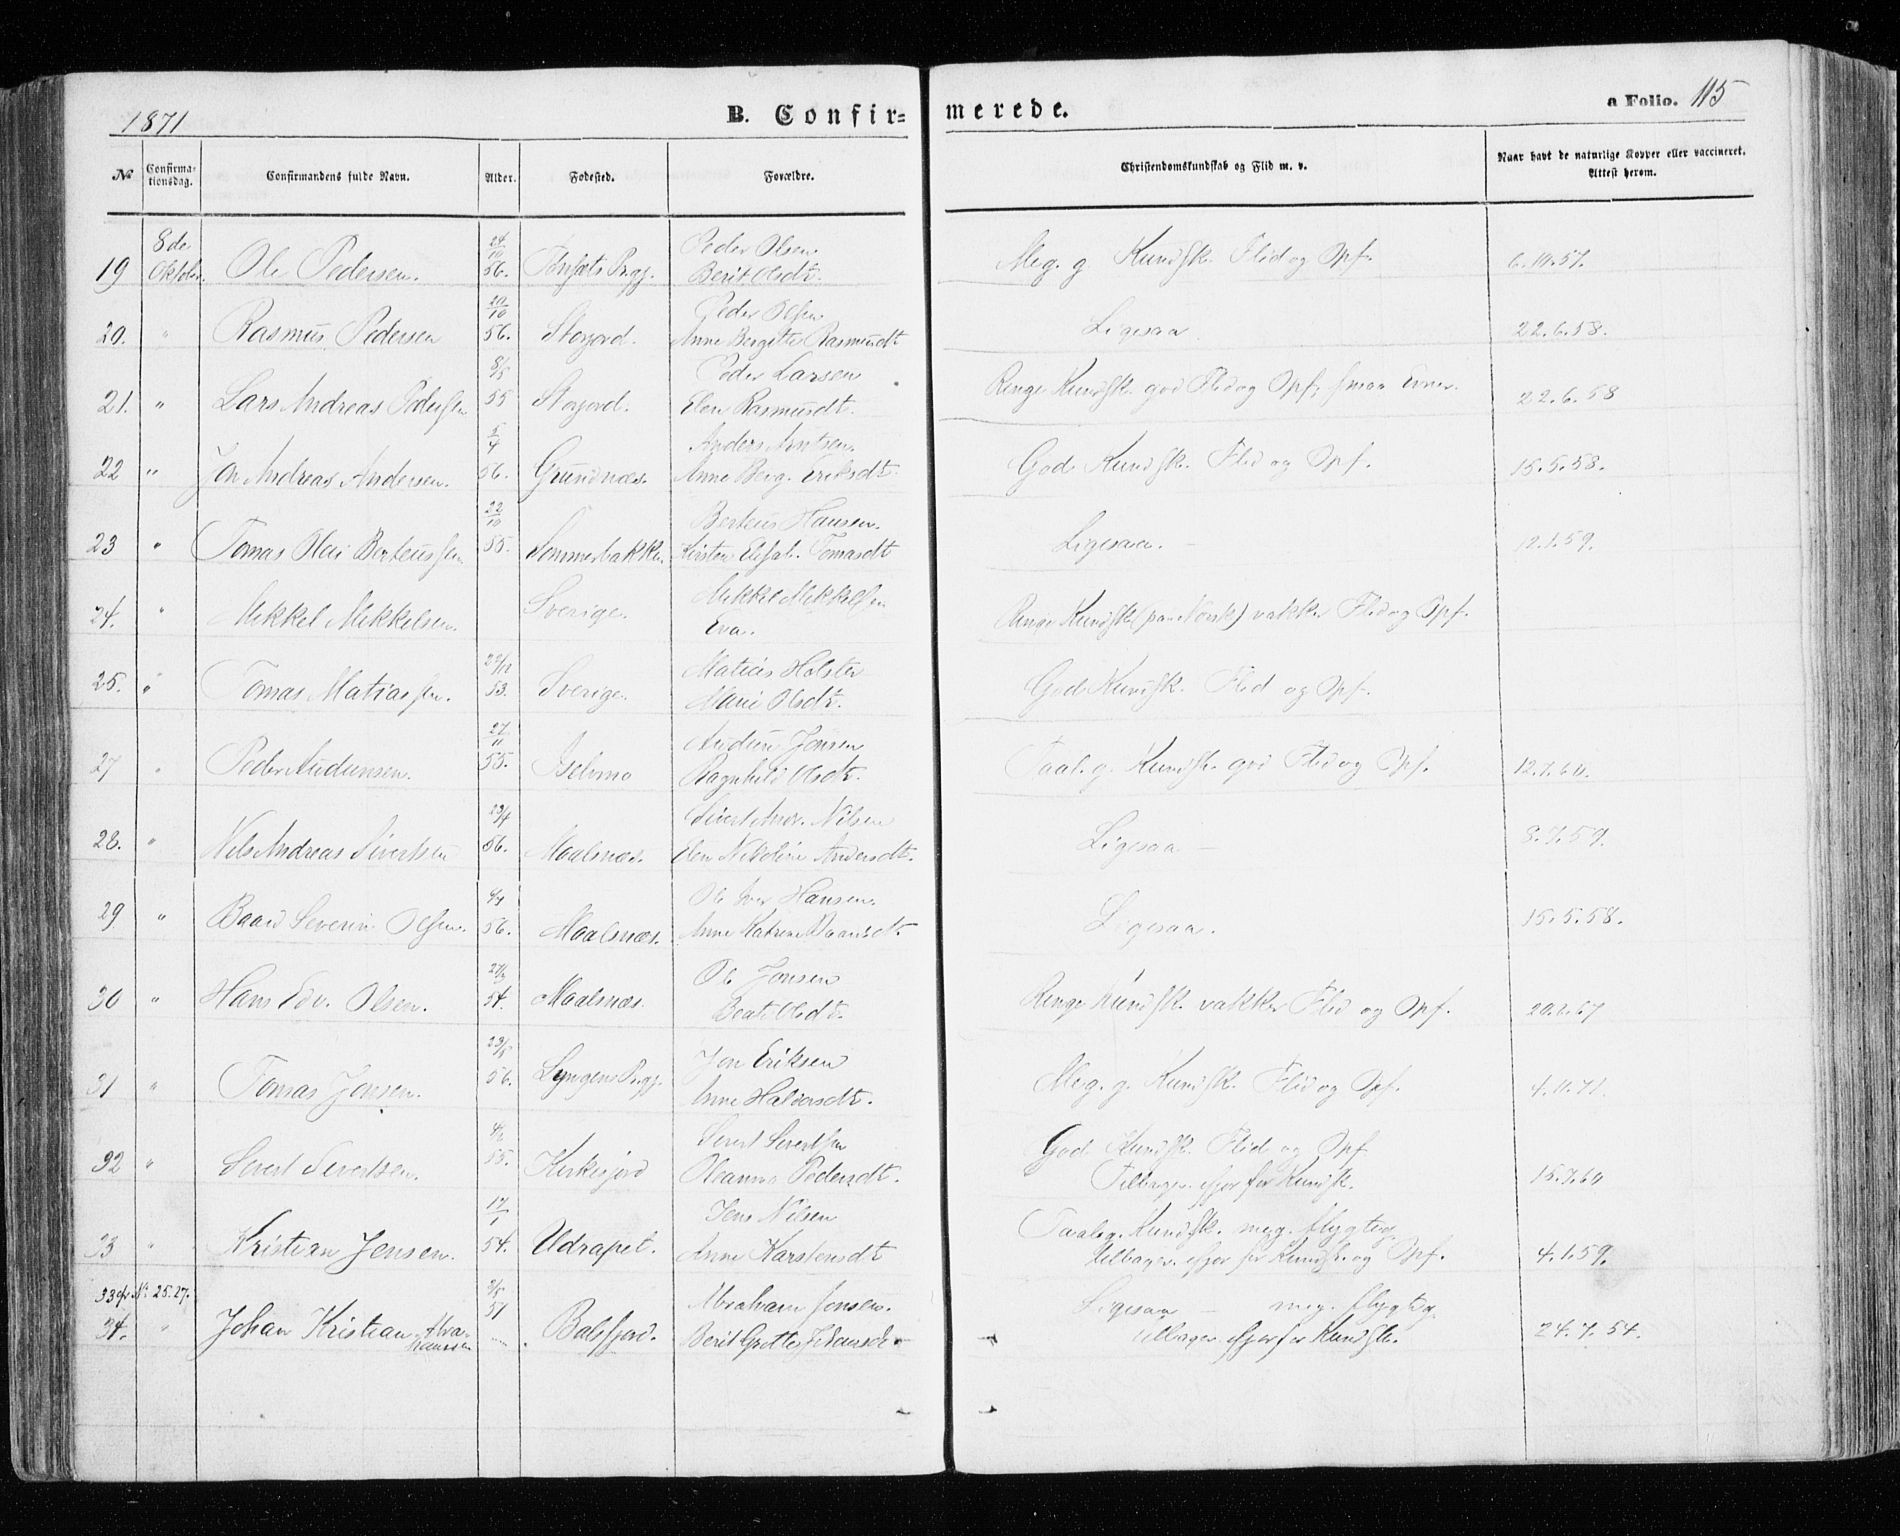 1871
B. Confir=
merede.
a Folio. 115
No
Confirma-
tionsdag.
Confirmandens fulde Navn.
Alder.
Fødested.
Forældre.
Christendomskundskab og Flid m. v.
Naar havt de naturlige Kopper eller vaccineret.
Attest herom.
8de 24/10 Peder Olsen
19 Oktober Ole Pedersen. 56. Berit Olsdt. Meg. g Kundsk. Flid og Opf. 6.10.57.
20/10 Peder Olsen
20. " Rasmus Pedersen 56. Storjord. Anne Bergitte Rasmusdt. Ligesaa 22.6.58.
8/5 Peder Larsen
21. " Lars Andreas Pedersen 55 Storjord. Elen Rasmusdt. Ringe Kundsk. god Flid og Opf. smaa Evner. 22.6.58
5/4 Anders Arntsen
22 " Jon Andreas Andersen. 56. Grundnæs. Anne Berg. Eriksdt. God Kundsk. Flid og Opf. 15.5.58.
22/10 Berteus Hansen.
23 " Tomas Olai Berteussen 55. Sommerbakken Kirsten Elisab. Tomasdt. Ligesaa. 12.1.59.
24. " Mikkel Mikkelsen. Sverige. Mikkel Mikkelsen
Eva. Ringe Kundsk. (paa Norsk) vakker Flid og Opf.
Matias Holster
25. " Tomas Matiassen. 53. Sverige. Marie Olsdt. God Kundsk. Flid og Opf.
27/11 Audun Jonsen
27 " Peder Audunsen. 55. Iselvmo Ragnhild Olsdt. Taal. g. Kundsk. god Flid og Opf. 12.7.60.
23/4 Sivert Andr. Nilsen
28. " Nils Andreas Sivertsen 56. Maalsnæs. Elen Nikoline Andersdt. Ligesaa 8.7.59.
Ole Iver Hansen.
29 " Baard Severin Olsen. 56. Maalsnæs. Anne Katrine Baardsdt. Ligesaa. 15.5.58.
Ole Jonsen
30 " Hans Edv. Olsen. 54. Maalsnæs. Beate Olsdt. Ringe Kundsk. vakker Flid og Opf.
23/5 Jon Eriksen
31 " Tomas Jonsen. 56. Lyngens Prgj. Anne Halvorsdt. Meg. g. Kundsk. Flid og Opf. 4.11.71.
Sivert Sivertsen God Kundsk. Flid og Opf
32 " Sivert Sivertsen. 55. Kirkesjord Oleanna Pedersdt. Tilbagev. ifjor for Kundsk. 15.7.60
17/1 Jens Nilsen Taal. g. Kundsk. meg. flygtig.
33 " Kristian Jensen. 54. Udrapet. Anne Karstensdt. tilbagev. ifjor for Kundsk. og Opf. 4.1.59.
33 cfr. No 25.27. Abraham Jonsen. Ligesaa — meg. flygtig.
34. " Johan Kristian Abra-
hamsen 51 Balsfjord. Berit Grethe Johansdt. tilbagev. ifjor for Kundsk. 24.7.54.